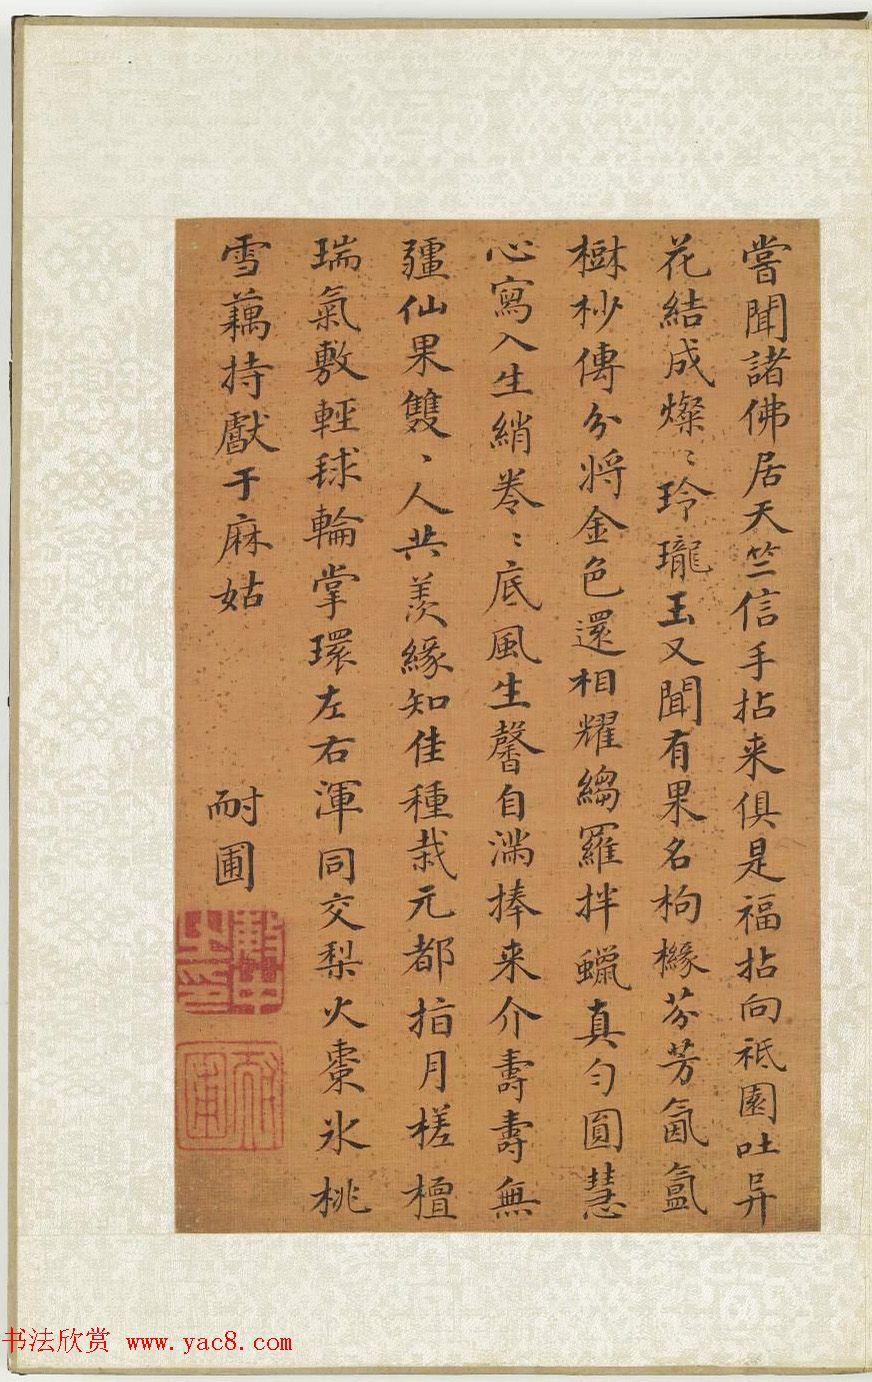 嘗聞諸佛居天竺信手拈来俱是福拈向祗園吐异
花結成燦〻玲瓏玉又聞有果名枸櫞芬芳氤氳
樹杪傳分將金色還相耀縐羅拌蠟真勻圓慧
心寫入生綃卷〻底風生馨自滿捧来介壽壽無
疆仙果雙〻人共羨緣知佳種栽元都指月槎檀
瑞氣敷輕毬輪掌環左右渾同交梨火棗冰桃
雪藕持獻于麻姑
耐圃
耐圃
书法欣赏 www.yac8.com